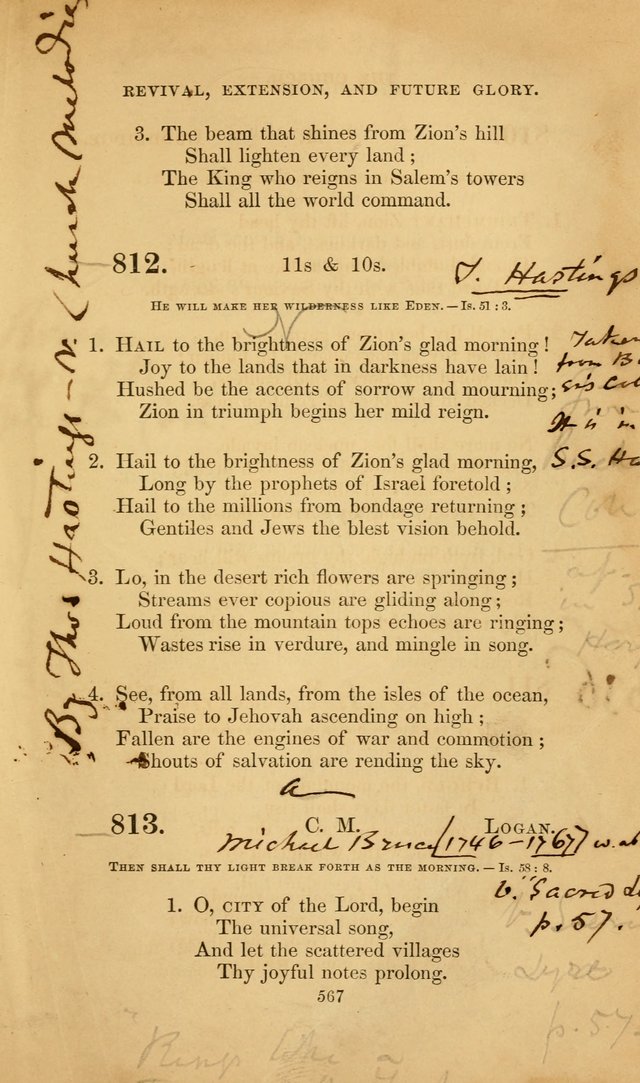 REVIVAL, EXTENSION, AND FUTURE GLORY.
3. The beam that shines from Zion's hill
Shall lighten every land;
The King who reigns in Salem's towers
Shall all the world command.
812. 11s & 10s.
T. Hastings
HE WILL MAKE HER WILDERNESS LIKE EDEN.—IS. 51:3.
1. HAIL to the brightness of Zion's glad morning!
Joy to the lands that in darkness have lain!
Hushed be the accents of sorrow and mourning;
Zion in triumph begins her mild reign.
Taken
from B
Col
It is in
S.S. Ha
2. Hail to the brightness of Zion's glad morning,
Long by the prophets of Israel foretold;
Hail to the millions from bondage returning;
Gentiles and Jews the blest vision behold.
3. Lo, in the desert rich flowers are springing;
Streams ever copious are gliding along;
Loud from the mountain tops echoes are ringing;
Wastes rise in verdure, and mingle in song.
4. See, from all lands, from the isles of the ocean,
Praise to Jehovah ascending on high;
Fallen are the engines of war and commotion;
Shouts of salvation are rending the sky.
By Thos Hastings - v. Church Melodies
a
813. C. M. LOGAN.
Michael Bruce (1746-1767) w. ab
THEN SHALL THY LIGHT BREAK FORTH AS THE MORNING.—IS. 58:8.
v. "Sacred Ly
p. 57.
1. O, CITY of the Lord, begin
The universal song,
And let the scattered villages
Thy joyful notes prolong.
567
Lyre
p. 57